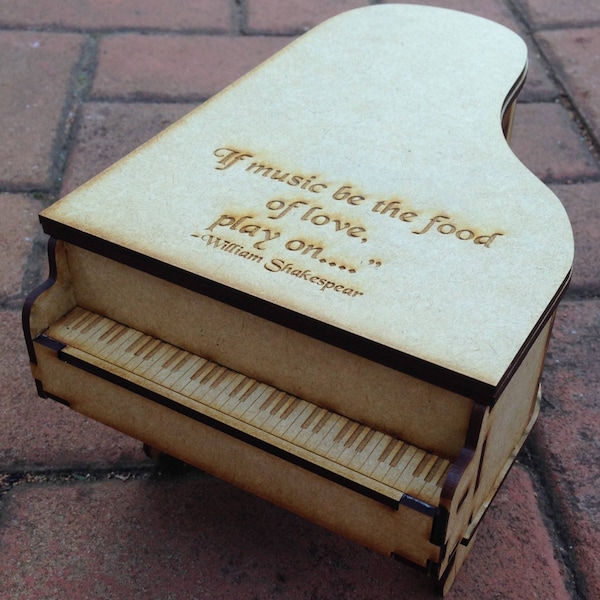 "If music be the food
of love,
play on...."
-William Shakespear